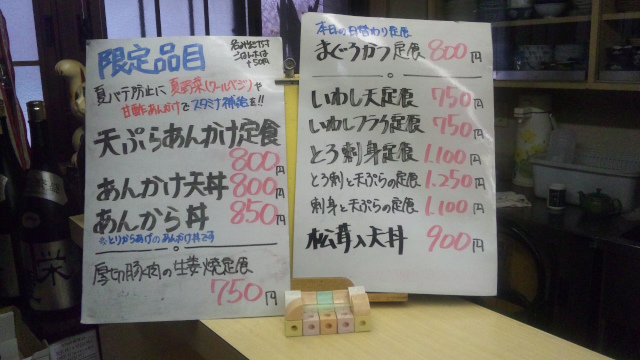 限定品目
夏バテ防止に夏野菜(クールベジ)や
甘酢あんかけでスタミナ補給を!!
天ぷらあんかけ定食
800円
あんかけ天丼 800円
あんから丼 850円
※とりからあげのあんかけ丼です
厚切豚肉の生姜焼定食
750円
本日の日替わり定食
まぐろかつ定食 800円
いわし天定食 750円
いわしフライ定食 750円
とろ刺身定食 1.100円
とろ刺と天ぷらの定食 1.250円
刺身と天ぷらの定食 1.100円
松茸入天丼 900円